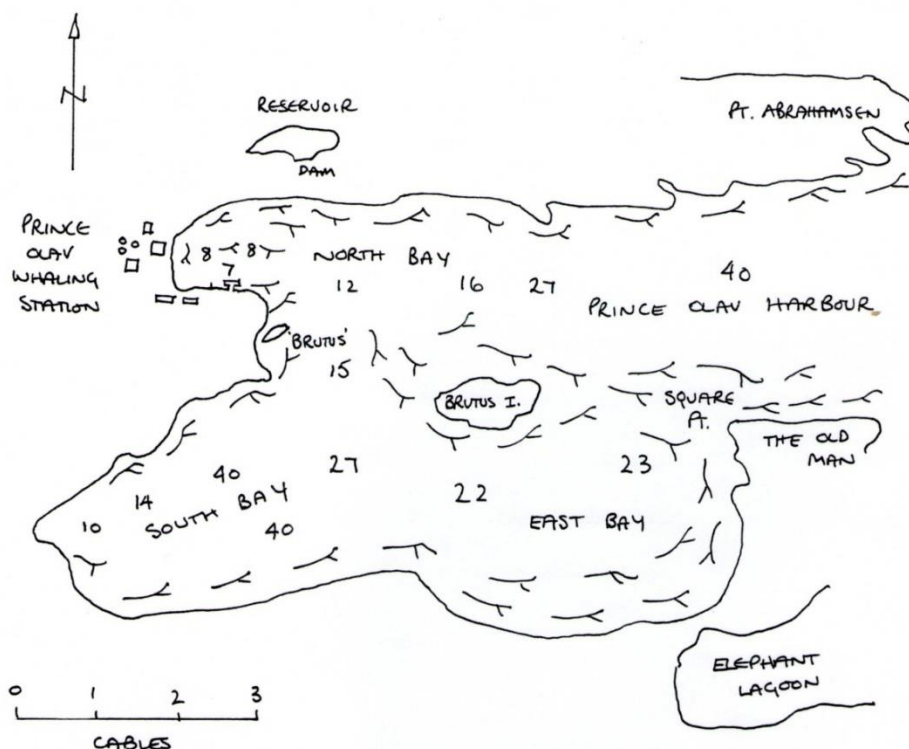 N
RESERVOIR
DAM
PT. ABRAHAMSEN
PRINCE
OLAV
WHALING
STATION
8 8
7
NORTH BAY
12 16 27
40
PRINCE OLAV HARBOUR
'BRUTUS'
15
BRUTUS I.
SQUARE
PT.
THE OLD
MAN
27
23
40
14
10
SOUTH BAY
40
22
EAST BAY
ELEPHANT
LAGOON
0 1 2 3
CABLES